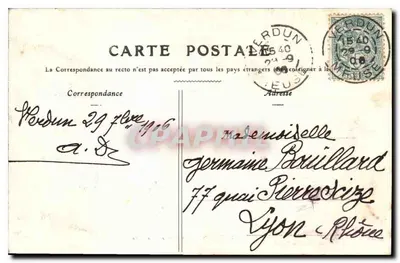 VERDUN
15 40
29 -9
06
MEUSE
VERDUN
15 40
29 -9
06
MEUSE
CARTE POSTALE
La Correspondance au recto n'est pas acceptée par tous les pays étrangers
Correspondance
Adresse
Verdun 29 7bre 1906
A.D.
Mademoiselle
Germaine Bouillard
77 quai Pierre Scize
Lyon
Rhône